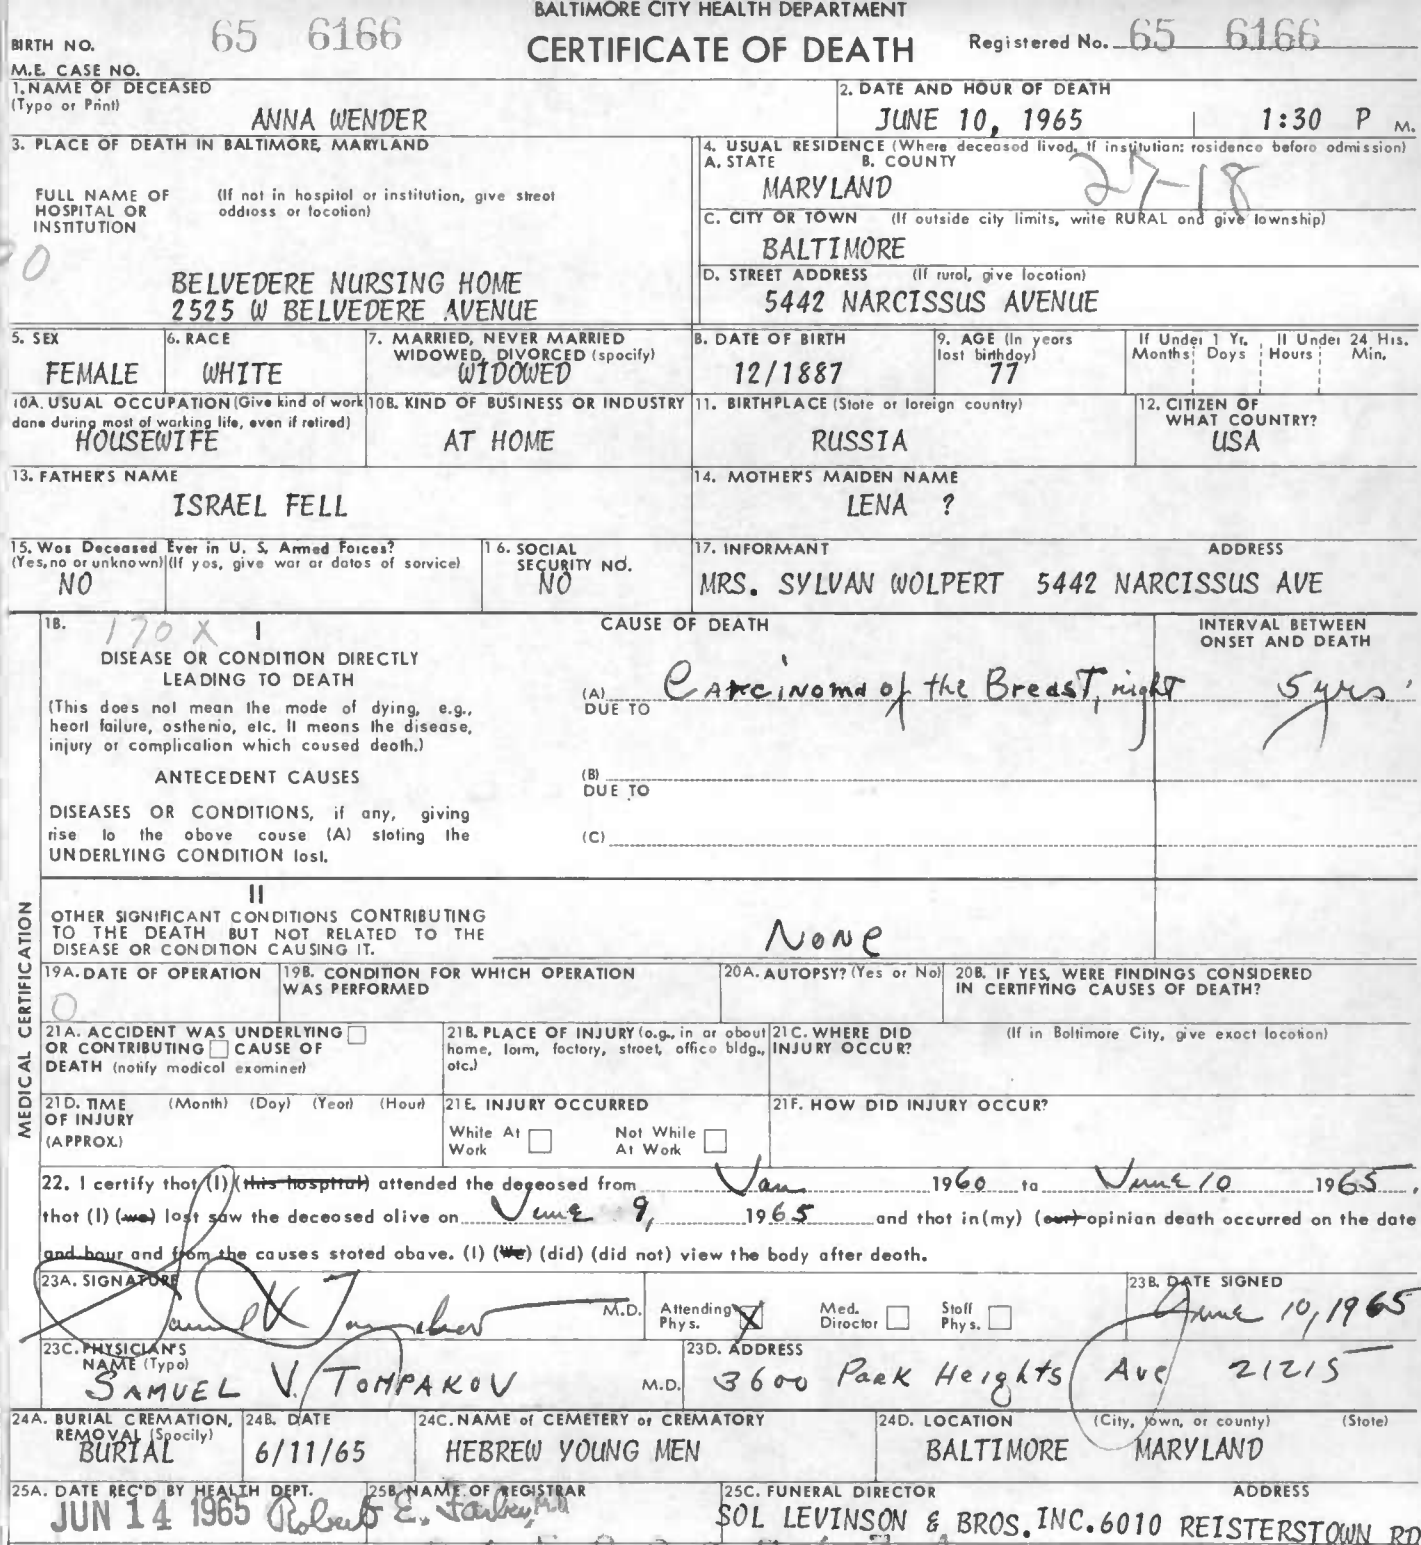 BALTIMORE CITY HEALTH DEPARTMENT
BIRTH NO. 65 6166 CERTIFICATE OF DEATH Registered No. 65 6166
M.E. CASE NO.
1. NAME OF DECEASED
(Type or Print) ANNA WENDER
2. DATE AND HOUR OF DEATH
JUNE 10, 1965 1:30 P M.
3. PLACE OF DEATH IN BALTIMORE, MARYLAND
FULL NAME OF HOSPITAL OR INSTITUTION (If not in hospital or institution, give street address or location)
BELVEDERE NURSING HOME
2525 W BELVEDERE AVENUE
4. USUAL RESIDENCE (Where deceased lived. If institution: residence before admission)
A. STATE B. COUNTY
MARYLAND 27-18
C. CITY OR TOWN (If outside city limits, write RURAL and give township)
BALTIMORE
D. STREET ADDRESS (If rural, give location)
5442 NARCISSUS AVENUE
5. SEX
FEMALE
6. RACE
WHITE
7. MARRIED, NEVER MARRIED
WIDOWED, DIVORCED (specify)
WIDOWED
8. DATE OF BIRTH
12/1887
9. AGE (In years
last birthday)
77
If Under 1 Yr. If Under 24 Hrs.
Months Days Hours Min.
10A. USUAL OCCUPATION (Give kind of work
done during most of working life, even if retired)
HOUSEWIFE
10B. KIND OF BUSINESS OR INDUSTRY
AT HOME
11. BIRTHPLACE (State or foreign country)
RUSSIA
12. CITIZEN OF
WHAT COUNTRY?
USA
13. FATHER'S NAME
ISRAEL FELL
14. MOTHER'S MAIDEN NAME
LENA ?
15. Was Deceased Ever in U. S. Armed Forces?
(Yes, no or unknown) (If yes, give war or dates of service)
NO
16. SOCIAL
SECURITY NO.
NO
17. INFORMANT ADDRESS
MRS. SYLVAN WOLPERT 5442 NARCISSUS AVE
MEDICAL CERTIFICATION
18. 170 X I CAUSE OF DEATH INTERVAL BETWEEN
ONSET AND DEATH
DISEASE OR CONDITION DIRECTLY
LEADING TO DEATH
(This does not mean the mode of dying, e.g.,
heart failure, asthenia, etc. It means the disease,
injury or complication which caused death.)
(A) Carcinoma of the Breast, right 5 yrs
DUE TO
ANTECEDENT CAUSES
(B)
DUE TO
DISEASES OR CONDITIONS, if any, giving
rise to the above cause (A) stating the
UNDERLYING CONDITION last.
(C)
II
OTHER SIGNIFICANT CONDITIONS CONTRIBUTING
TO THE DEATH BUT NOT RELATED TO THE
DISEASE OR CONDITION CAUSING IT.
None
19A. DATE OF OPERATION
0
19B. CONDITION FOR WHICH OPERATION
WAS PERFORMED
20A. AUTOPSY? (Yes or No)
20B. IF YES, WERE FINDINGS CONSIDERED
IN CERTIFYING CAUSES OF DEATH?
21A. ACCIDENT WAS UNDERLYING
OR CONTRIBUTING CAUSE OF
DEATH (notify medical examiner)
21B. PLACE OF INJURY (e.g., in or about
home, farm, factory, street, office bldg.,
etc.)
21C. WHERE DID (If in Baltimore City, give exact location)
INJURY OCCUR?
21D. TIME (Month) (Day) (Year) (Hour)
OF INJURY
(APPROX.)
21E. INJURY OCCURRED
While At Work Not While At Work
21F. HOW DID INJURY OCCUR?
22. I certify that (I) (this hospital) attended the deceased from Jan 1960 to June 10 1965,
that (I) (we) last saw the deceased alive on June 9, 1965 and that in (my) (our) opinion death occurred on the date
and hour and from the causes stated above. (I) (We) (did) (did not) view the body after death.
23A. SIGNATURE
Samuel V. Tompakov M.D.
Attending Phys. X Med. Director Staff Phys.
23B. DATE SIGNED
June 10, 1965
23C. PHYSICIAN'S
NAME (Type)
SAMUEL V. TOMPAKOV M.D.
23D. ADDRESS
3600 Park Heights Ave 21215
24A. BURIAL CREMATION,
REMOVAL (Specify)
BURIAL
24B. DATE
6/11/65
24C. NAME of CEMETERY or CREMATORY
HEBREW YOUNG MEN
24D. LOCATION (City, town, or county) (State)
BALTIMORE MARYLAND
25A. DATE REC'D BY HEALTH DEPT.
JUN 14 1965
25B. NAME OF REGISTRAR
Robert E. Farber, M.D.
25C. FUNERAL DIRECTOR ADDRESS
SOL LEVINSON & BROS. INC. 6010 REISTERSTOWN RD